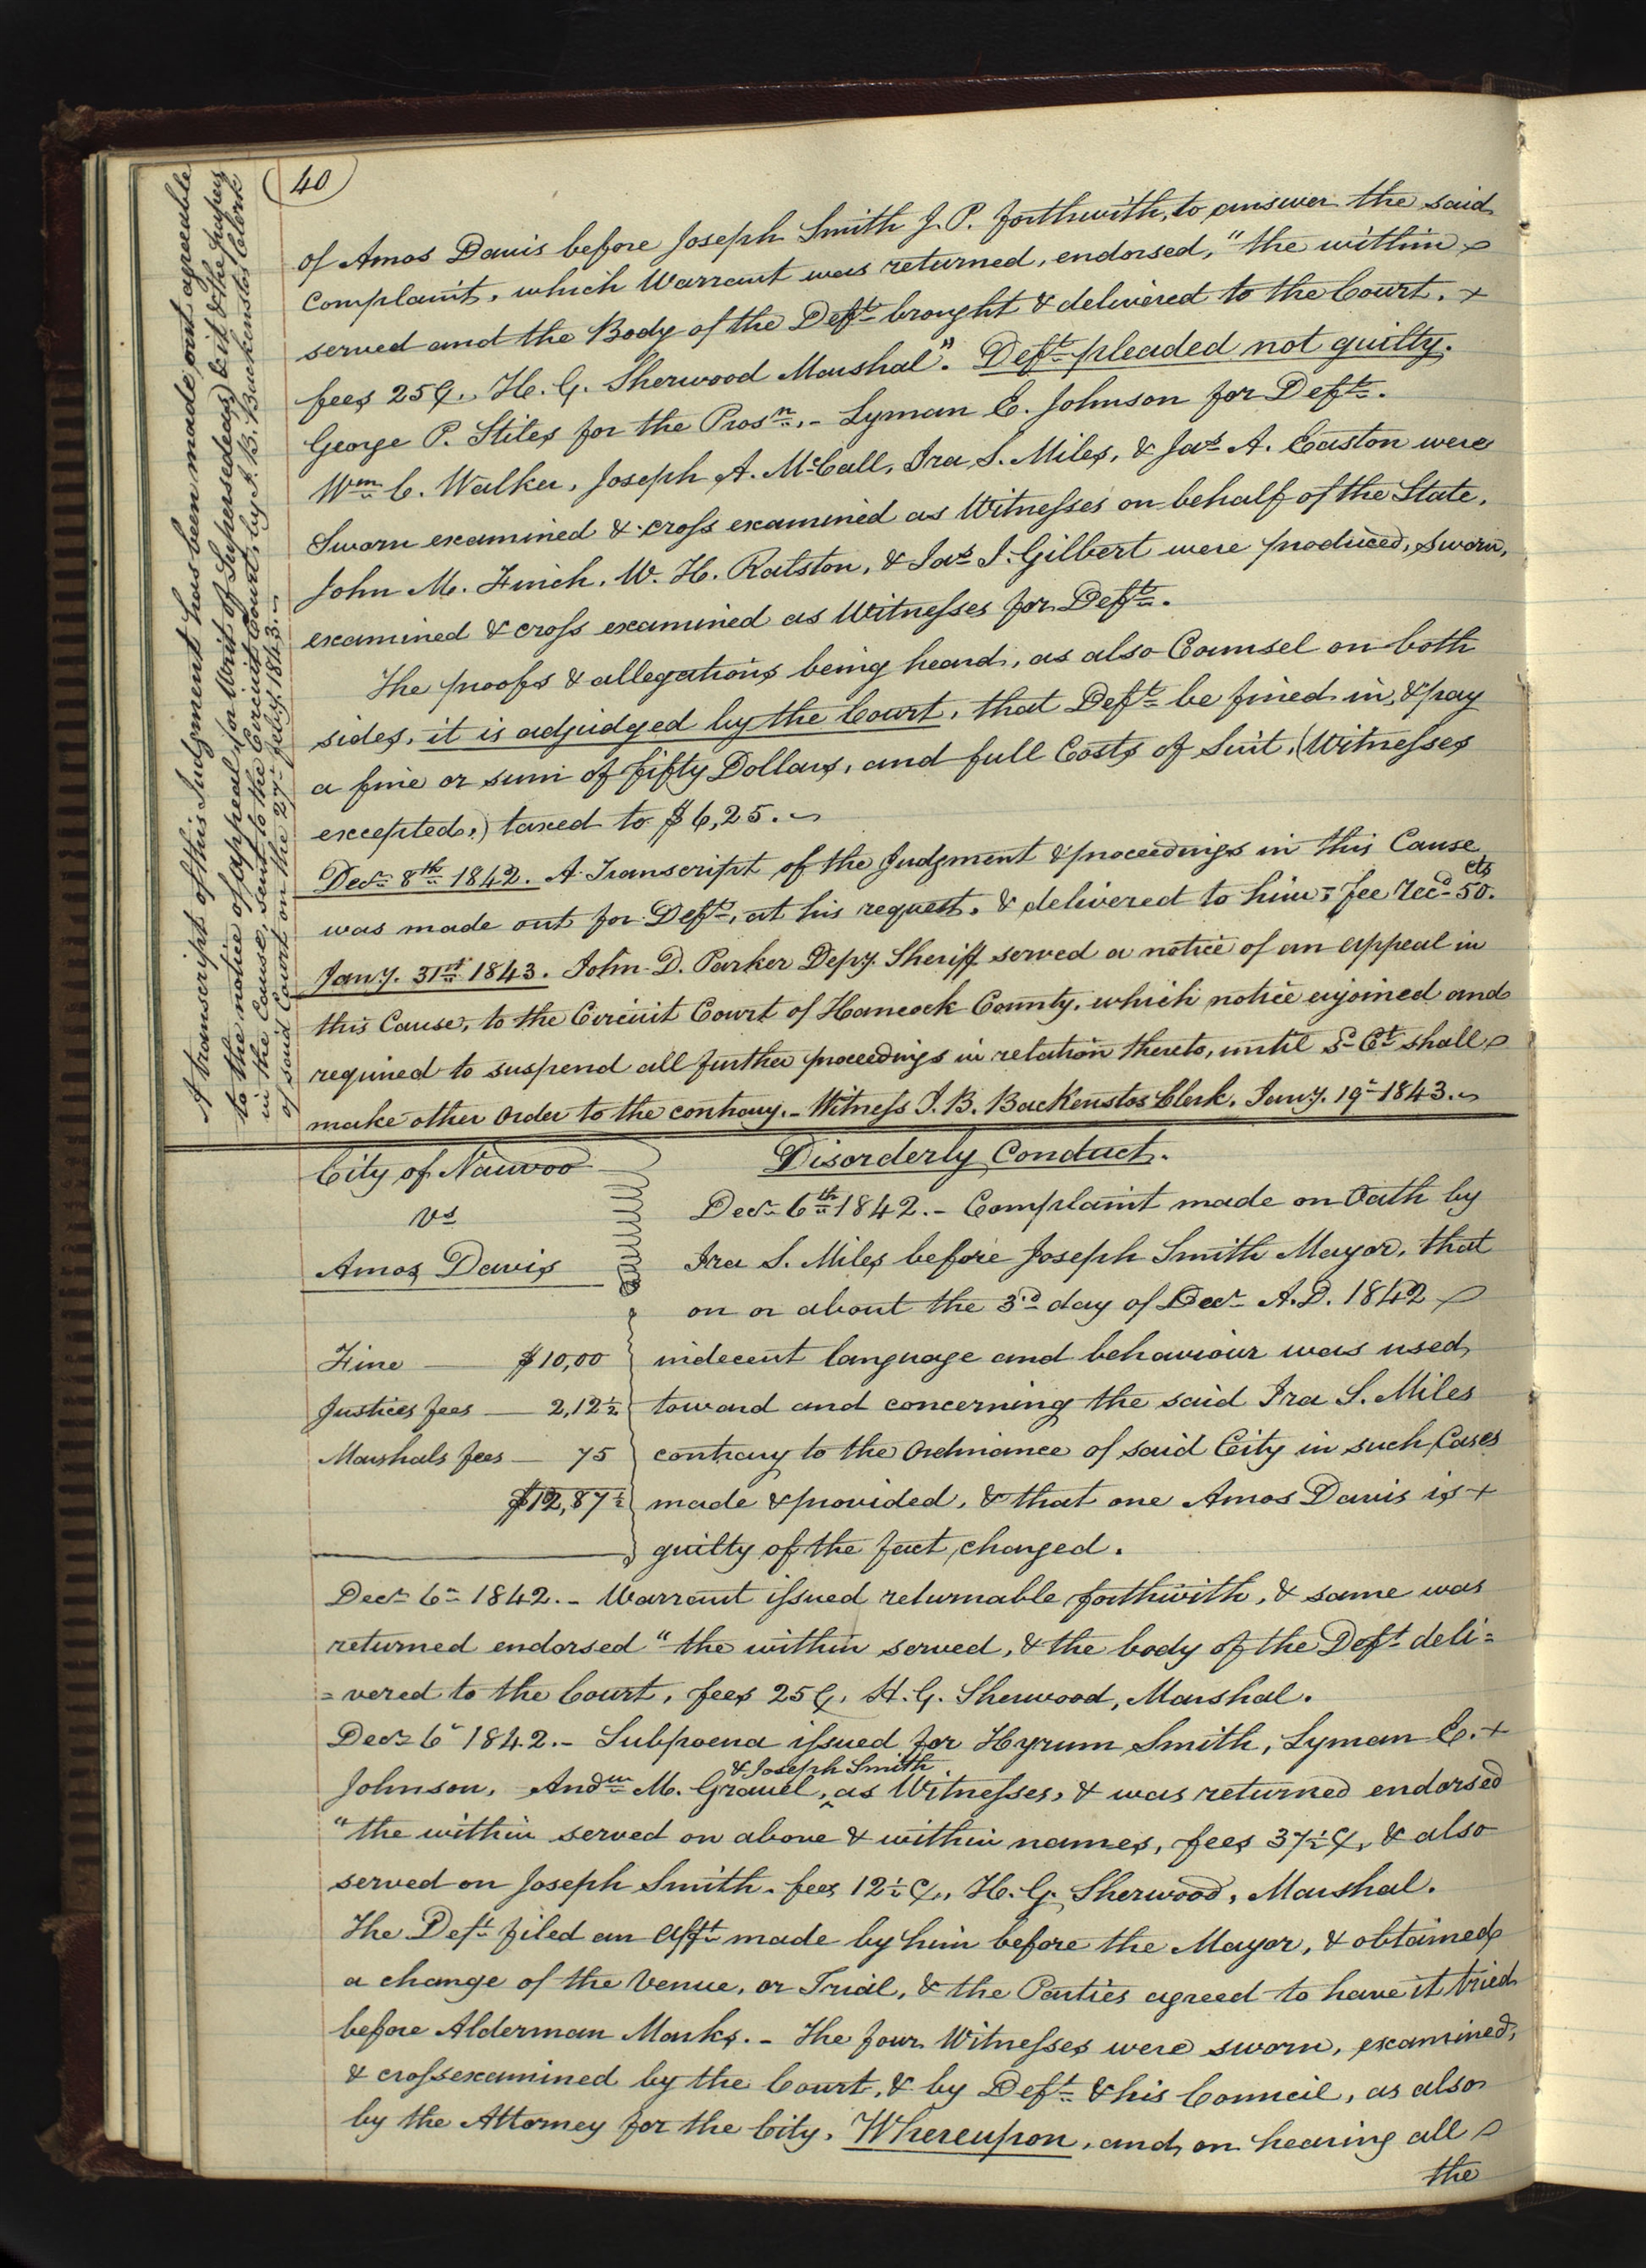 40
of Amos Davis before Joseph Smith J. P. forthwith, to answer the said
complaint, which Warrant was returned, endorsed, "the within
served and the Body of the Deft. brought & delivered to the Court. +
fees 25₵. H. G. Sherwood Marshal". Deft. pleaded not guilty.
George P. Stiles for the Prosn. - Lyman E. Johnson for Deft.
Wm. C. Walker, Joseph A. McCall, Ira S. Miles, & Jas. A. Easton were
Sworn examined & cross examined as Witnesses on behalf of the State.
John M. Finch, W. H. Ralston, & Jas. J. Gilbert were produced, sworn,
examined & cross examined as Witnesses for Deft.
The proofs & allegations being heard, as also Counsel on both
sides, it is adjudged by the Court, that Deft. be fined in, & pay
a fine or sum of fifty Dollars, and full Costs of Suit, (Witnesses
excepted,) taxed to $6,25.
Decr. 8th 1842. A Transcript of the Judgment & proceedings in this Cause
was made out for Deft., at his request, & delivered to him; fee recd. 50. cts
Jany. 31st 1843. John D. Parker Depy. Sheriff served a notice of an appeal in
this Cause, to the Circuit Court of Hancock County, which notice enjoined and
required to suspend all further proceedings in relation thereto, until sd. Ct. shall
make other Order to the contrary. - Witness J. B. Backenstos Clerk. Jany. 19th 1843.
A transcript of this Judgment has been made out agreeable
to the notice of appeal (or Writ of Supersedeas) & it & the papers
in the Cause, sent to the Circuit Court, by J. B. Backenstos Clerk
of said Court on the 27th July 1843.
City of Nauvoo
vs
Amos Davis
Fine — $10,00
Justices fees — 2,12½
Marshals fees — 75
$12,87½
Disorderly Conduct.
Decr. 6th 1842. - Complaint made on Oath by
Ira S. Miles before Joseph Smith Mayor, that
on or about the 3rd day of Decr. A.D. 1842
indecent language and behaviour was used
toward and concerning the said Ira S. Miles
contrary to the Ordinance of said City in such Cases
made & provided, & that one Amos Davis is +
guilty of the fact charged.
Decr. 6th 1842. - Warrant issued returnable forthwith, & same was
returned endorsed "the within served, & the body of the Deft. deli=
=vered to the Court, fees 25₵. H. G. Sherwood, Marshal.
Decr. 6th 1842. - Subpoena issued for Hyrum Smith, Lyman E. +
Johnson, Andw. M. Gravel, ^& Joseph Smith as Witnesses, & was returned endorsed
"the within served on above & within names, fees 37½₵, & also
served on Joseph Smith. fees 12½₵., H. G. Sherwood, Marshal.
The Deft. filed an afft. made by him before the Mayor, & obtained
a change of the Venue, or Trial, & the Parties agreed to have it tried
before Alderman Marks. - The four Witnesses were sworn, examined,
& crossexamined by the Court, & by Deft. & his Council, as also
by the Attorney for the City. Whereupon, and on hearing all
the